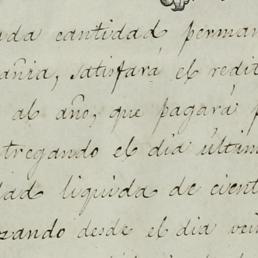 ada cantidad perman
añia, satisfará el redit
al año, que pagará p
tregando el dia últim
dad liquida de cient
zando desde el dia vein